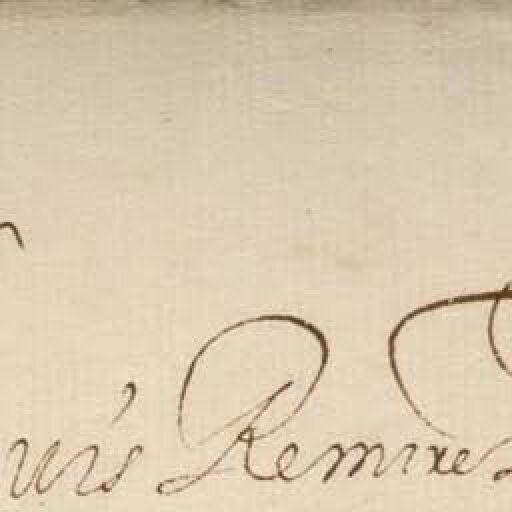 uis Remires